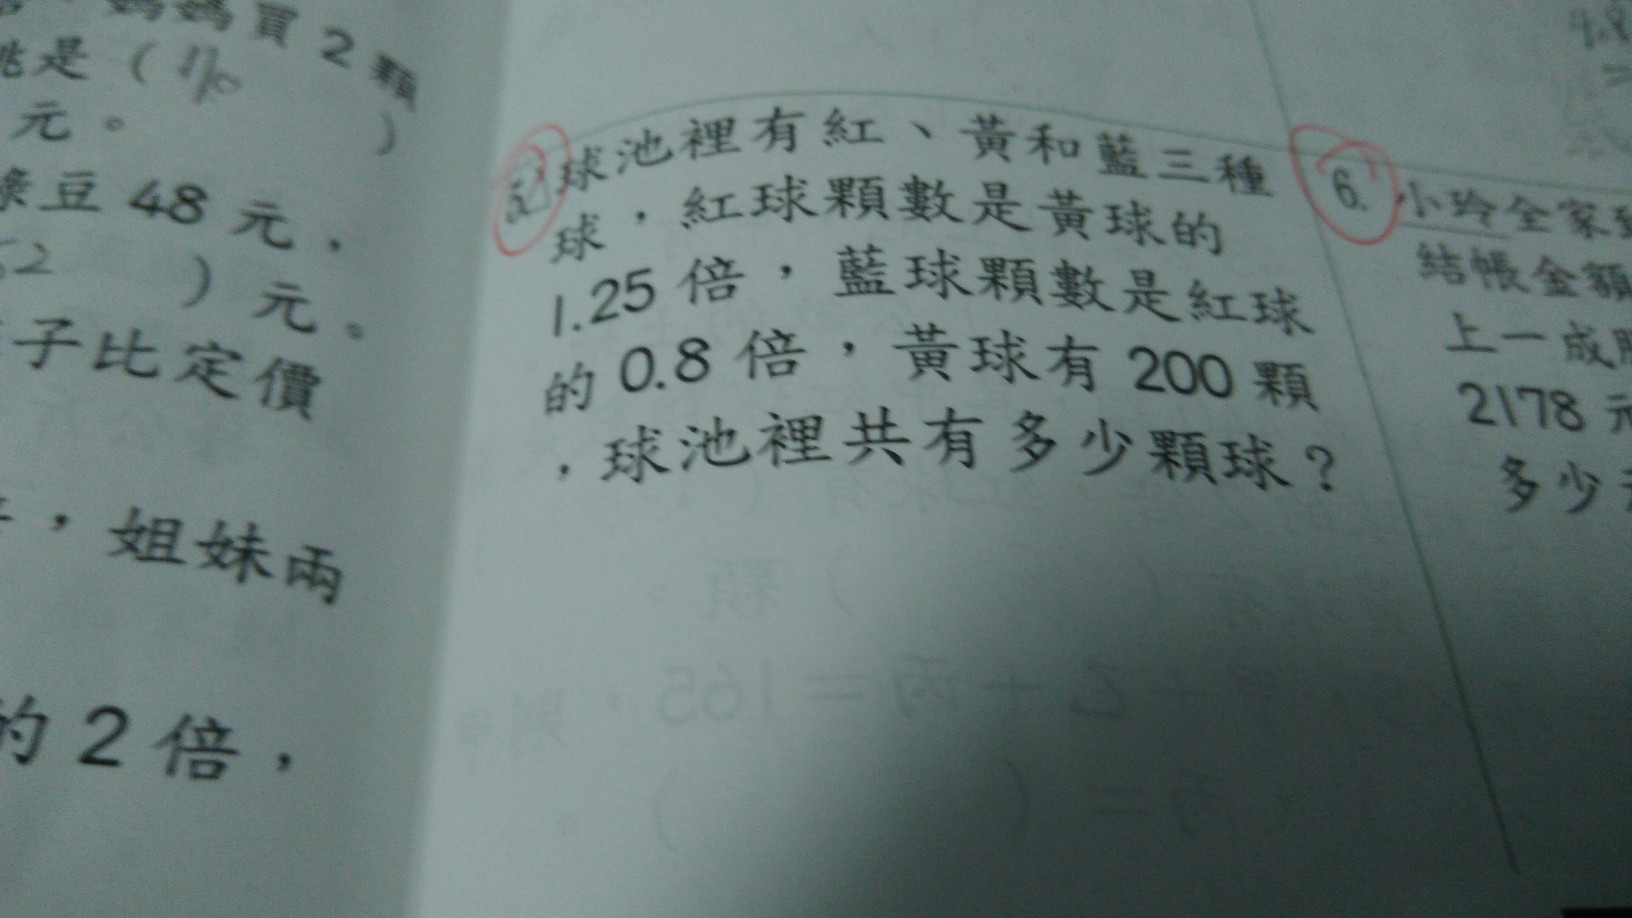 媽媽買 2 顆
桃是（170
）
元。
綠豆 48 元，
52 ）元。
子比定價
，姐妹兩
的 2 倍，
5. 球池裡有紅、黃和藍三種
球，紅球顆數是黃球的
1.25 倍，藍球顆數是紅球
的 0.8 倍，黃球有 200 顆
，球池裡共有多少顆球？
6. 小玲全家到
結帳金額
上一成服
2178 元
多少元